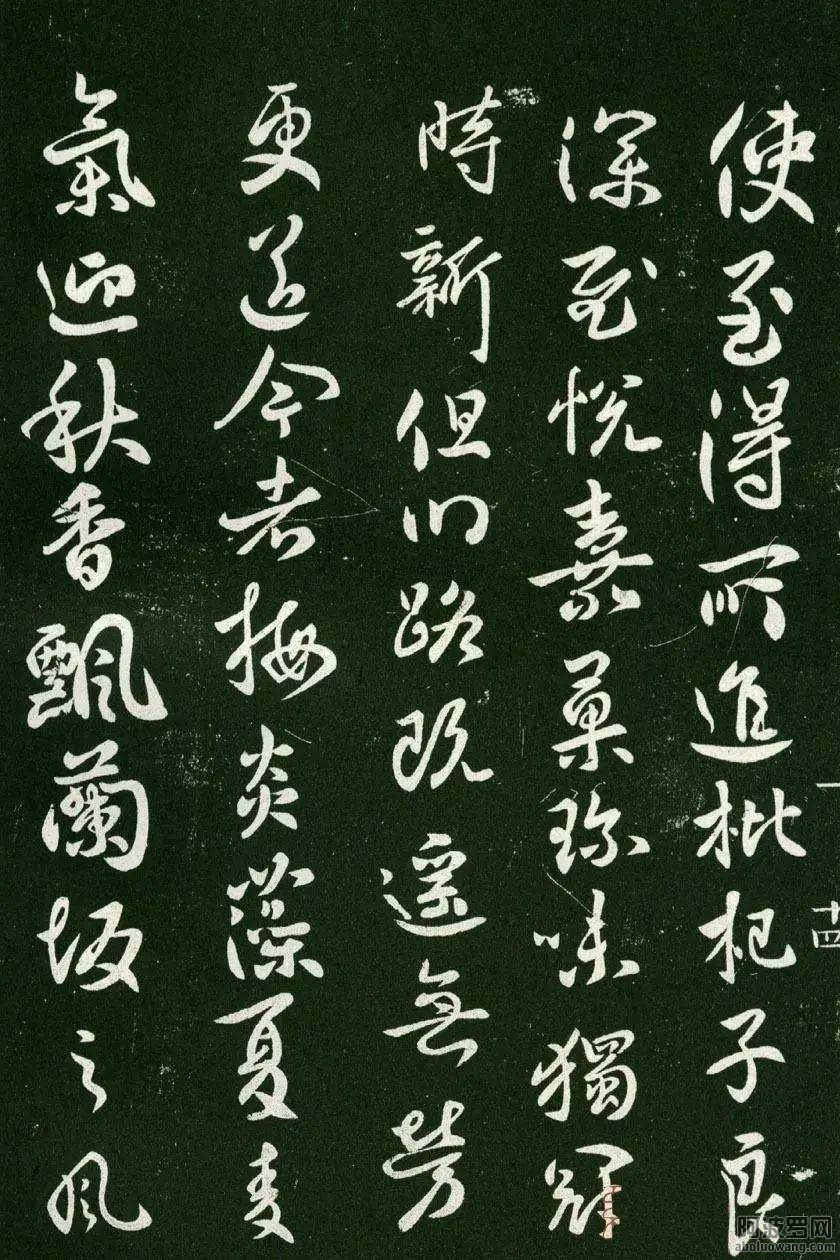 使至得所進枇杷子良
深慰悅嘉菓珍味獨冠
時新但川路既遥無勞
更送今者梅炎藻夏麦
氣迎秋香飄蘭坂之風
十四
阿波罗网
aboluowang.com